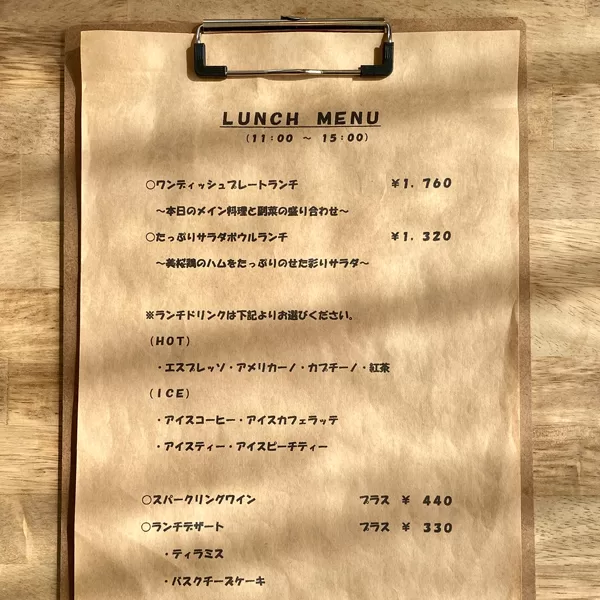 LUNCH MENU
(11:00 ～ 15:00)
○ワンディッシュプレートランチ ￥1,760
～本日のメイン料理と副菜の盛り合わせ～
○たっぷりサラダボウルランチ ￥1,320
～美桜鶏のハムをたっぷりのせた彩りサラダ～
※ランチドリンクは下記よりお選びください。
(HOT)
・エスプレッソ・アメリカーノ・カプチーノ・紅茶
(ICE)
・アイスコーヒー・アイスカフェラッテ
・アイスティー・アイスピーチティー
○スパークリングワイン プラス ￥ 440
○ランチデザート プラス ￥ 330
・ティラミス
・バスクチーズケーキ